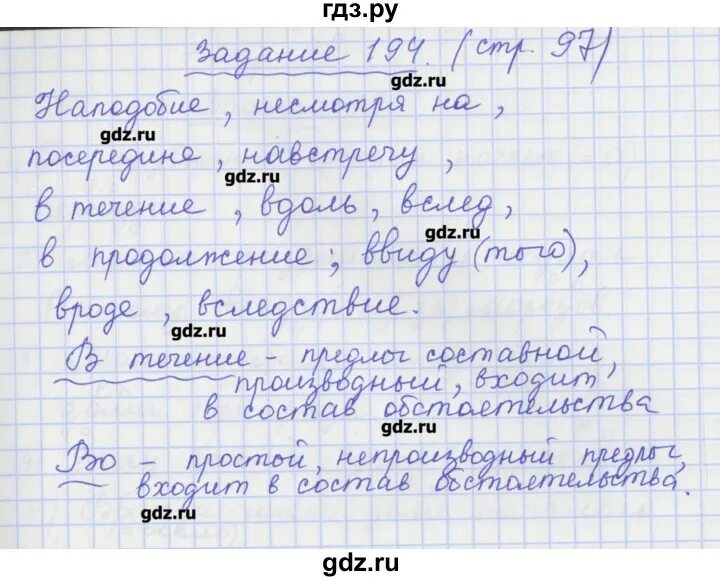 гдз.ру
Задание 194. (стр. 97)
gdz.ru
Наподобие, несмотря на,
gdz.ru
посередине, навстречу,
gdz.ru
в течение, вдоль, вслед,
gdz.ru
в продолжение; ввиду (того),
вроде, вследствие.
gdz.ru
В течение - предлог составной,
производный, входит
в состав обстоятельства
gdz.ru
Во - простой, непроизводный предлог,
входит в состав обстоятельства.
gdz.ru
gdz.ru